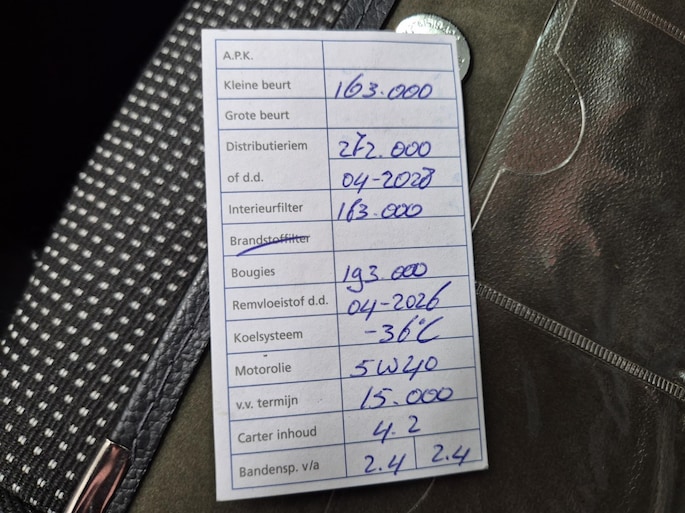 A.P.K.
Kleine beurt 163.000
Grote beurt
Distributieriem 272.000
of d.d. 04-2028
Interieurfilter 163.000
Brandstoffilter
Bougies 193.000
Remvloeistof d.d. 04-2026
Koelsysteem -36°C
Motorolie 5W40
v.v. termijn 15.000
Carter inhoud 4.2
Bandensp. v/a 2.4 2.4